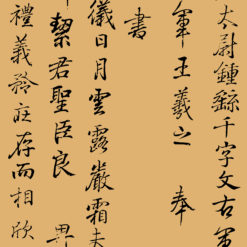 太尉鍾繇千字文右軍
軍王羲之奉
書
儀日月雲露嚴霜夫
絜君聖臣良
禮義矜莊存而相欣